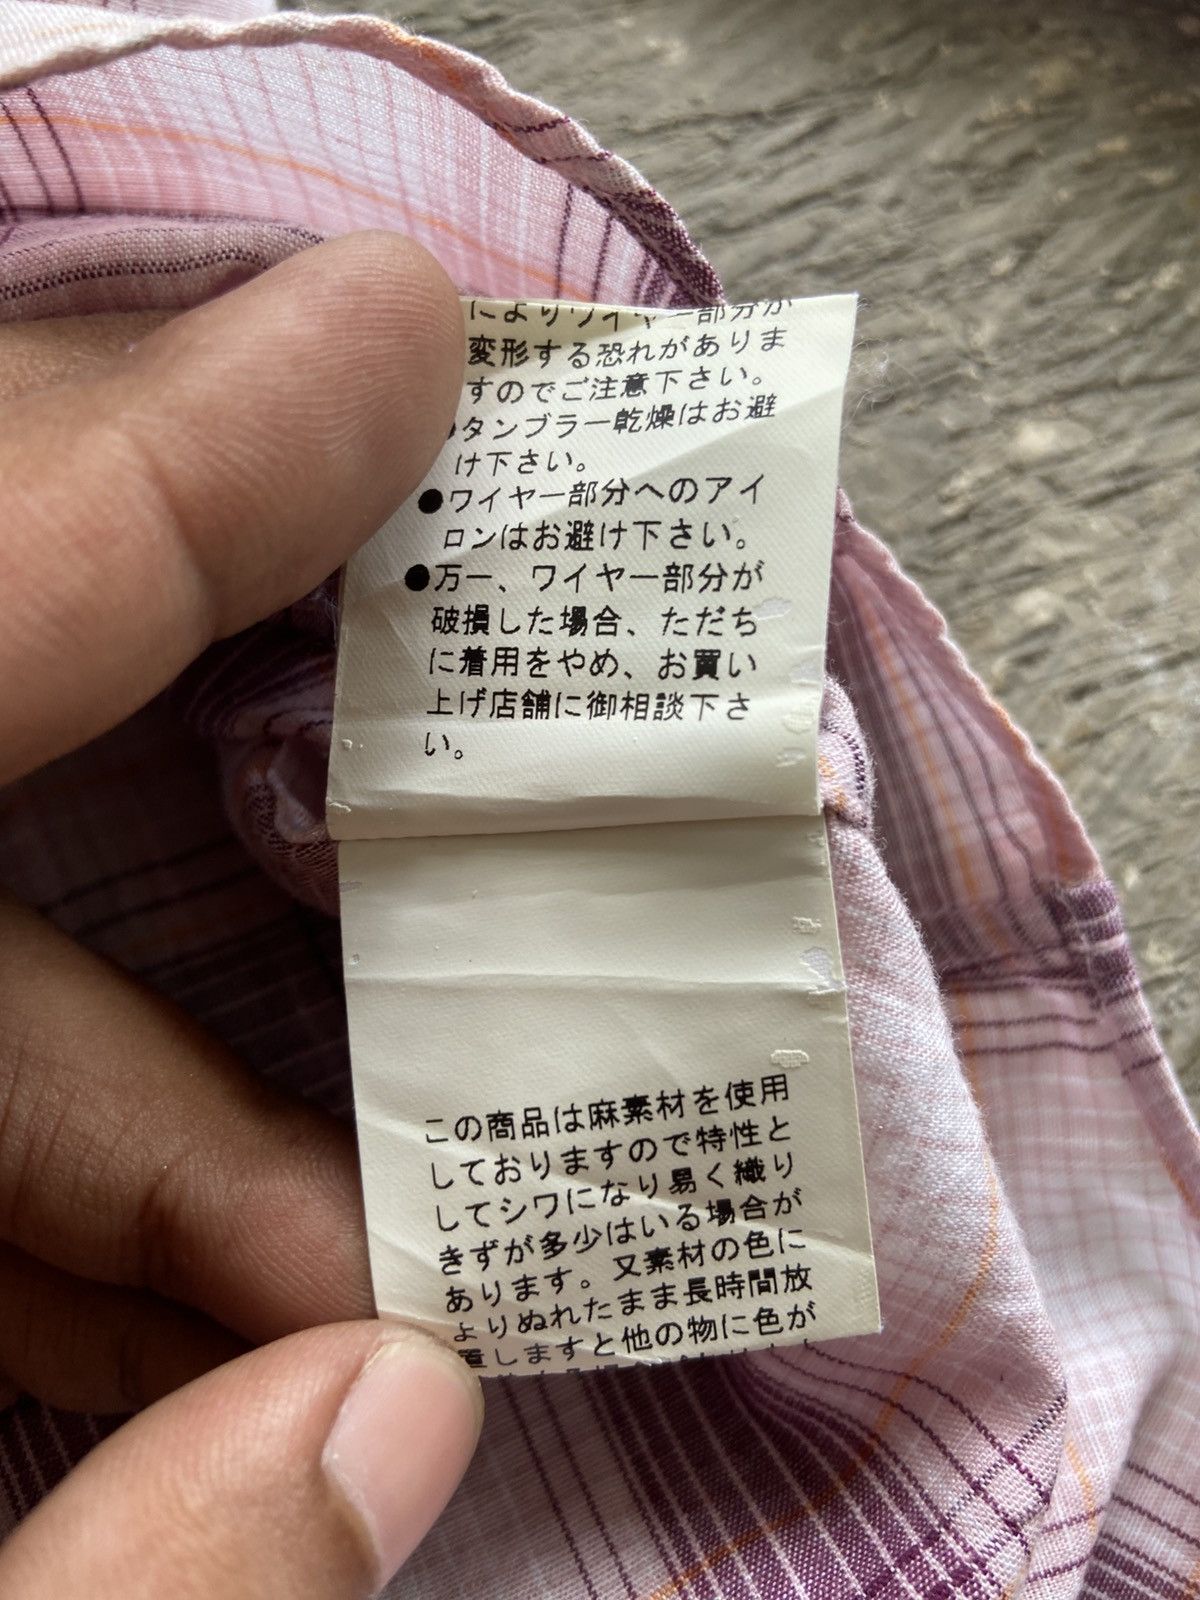 によりワイヤー部分が
変形する恐れがありま
すのでご注意下さい。
●タンブラー乾燥はお避
け下さい。
●ワイヤー部分へのアイ
ロンはお避け下さい。
●万一、ワイヤー部分が
破損した場合、ただち
に着用をやめ、お買い
上げ店舗に御相談下さ
い。
この商品は麻素材を使用
しておりますので特性と
してシワになり易く織り
きずが多少はいる場合が
あります。又素材の色に
よりぬれたまま長時間放
置しますと他の物に色が